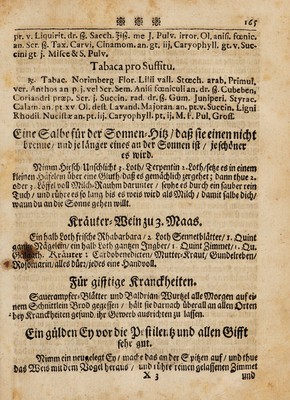 165
pr. v. Liquirit. dr. ß. Sacch. ℥iß. me J. Pulv. Irror. Ol. anisi. fœnic.
an. Scr. ß. Tax. Carvi, Cinamom. an. gt. iij, Caryophyll. gt. v. Suc-
cini gt j. Misce & S. Pulv.
Tabaca pro Suffitu.
℞. Tabac. Norimberg Flor. Lilii vall. Stœch. arab, Primul.
ver. Anthos an p j. vel Scr Sem. Anisi fœniculi an. dr. ß. Cubeben.
Coriandri præp. Scr. j. Succin. rad. dr. ß. Gum. Juniperi. Styrac.
Calam. an. pt. xv Ol. dest Lavand. Majoran. an. pt. v. Succin. Ligni
Rhodii. Nucistæ an. Caryophyll. pt. ij, M. f. Pul. Gross.
Eine Salbe für der Sonnen-Hitz / daß sie einen nicht
brenne / und je länger eines an der Sonnen ist / je schöner
es wird.
Nimm Hirsch-Unschlicht 3. Loth / Terpentin 2. Loth / setze es in einem
kleinen Häfelein über eine Gluth / daß es gemächlich zergehet; dann thue 2.
oder 3. Löffel voll Milch-Rauhm darunter / seyhe es durch ein sauber rein
Tuch / und rühre es so lang bis es weis wird als Milch / damit salbe dich /
wann du an die Sonne gehen willt.
Kräuter-Wein zu 3. Maas.
Ein halb Loth frische Rhabarbara / 2. Loth Sennetblätter / 1. Quint
gantze Nägelein / ein halb Loth gantzen Jngber / 1. Quint Zimmet / 1. Qu.
Kräuter: Cardobenedicten / Mutter-Kraut / Gundelreben /
Rosmarin / alles dürr / jedes eine Handvoll.
Für gifftige Kranckheiten.
Sauerampfer-Blätter und Baldrian-Wurtzel alle Morgen auf ei-
nem Schnittlein Brod gegessen / hält sie darnach überall an allen Orten
bey Kranckheiten gesund, ihr Geworb ausrichten zu lassen.
Ein gülden Ey vor die Pestilentz und allen Gifft
sehr gut.
Nimm ein neugelegt Ey / mache das an der Spitzen auf / und thue
das Weis mit dem Vogel heraus / und rühre reinen gelassenen Zimmet
X 3
und